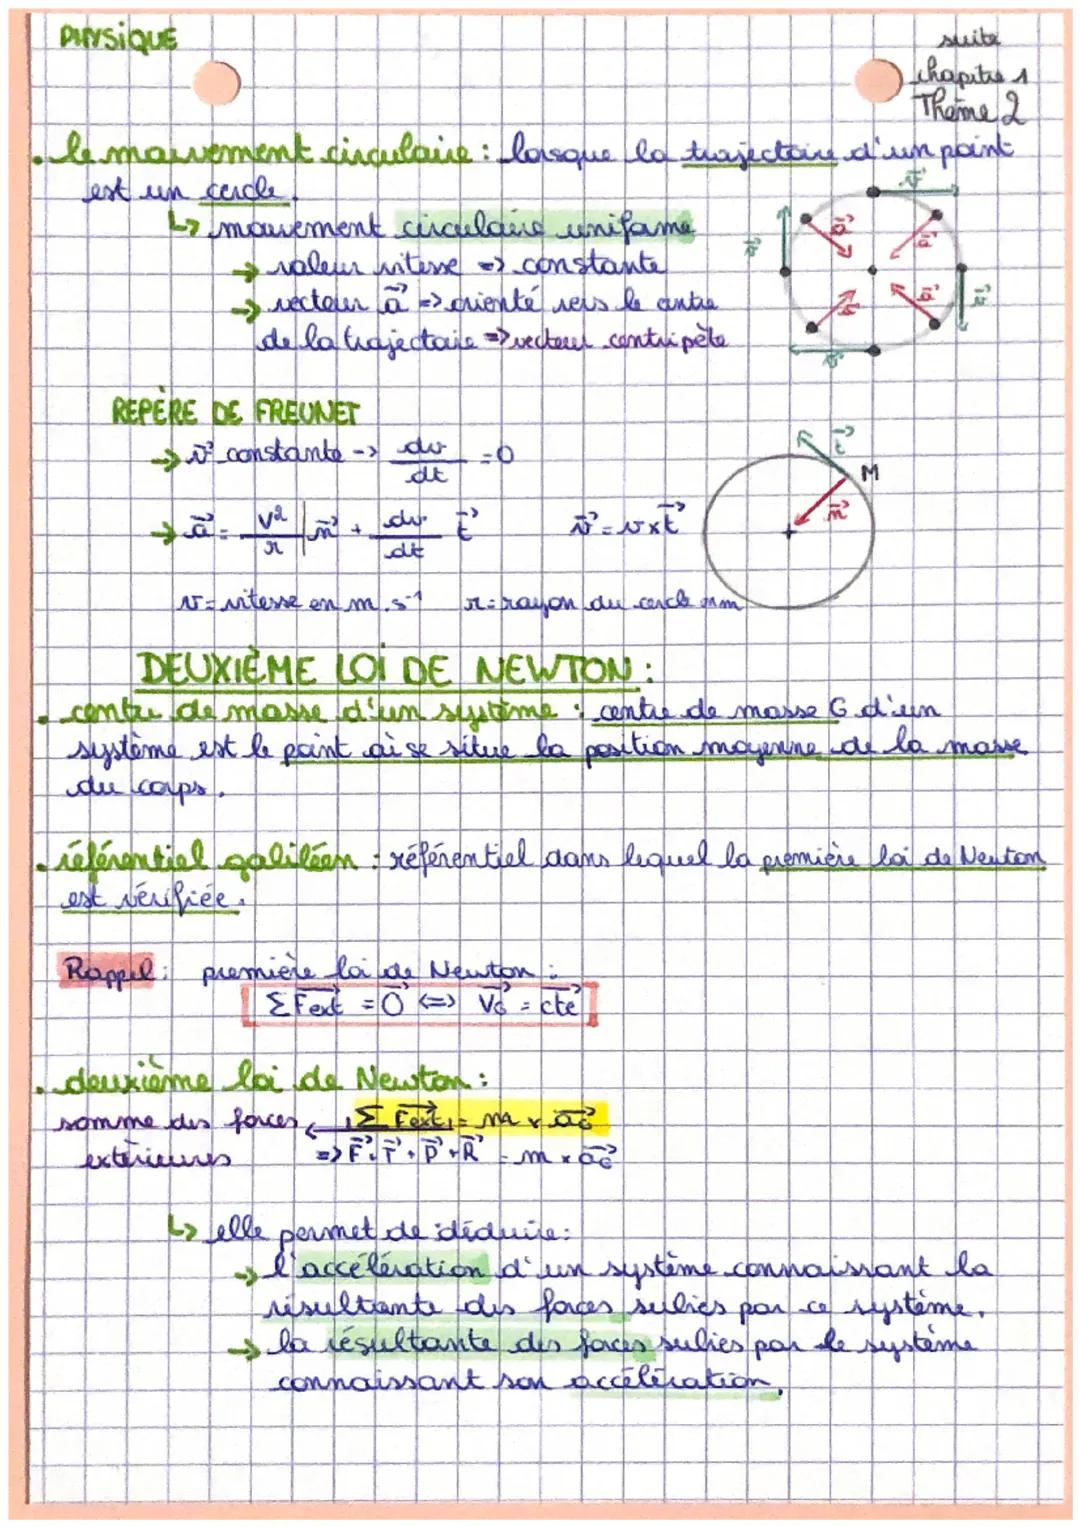 PHYSIQUE
suite
chapitre 1
Thème 2
. le mouvement circulaire : lorsque la trajectoire d'un point
est un cercle.
↳ mouvement circulaire uniforme
→ valeur vitesse => constante
→ vecteur a⃗ => orienté vers le centre
de la trajectoire => vecteur centripète
v⃗ a⃗ a⃗ v⃗ a⃗ a⃗ v⃗ v⃗
REPÈRE DE FREUNET
→ v⃗ constante -> dv/dt = 0
→ a⃗ = v²/r | n⃗ + dv/dt t⃗
v⃗ = v x t⃗
t⃗ M n⃗
v = vitesse en m.s⁻¹ r = rayon du cercle en m
DEUXIÈME LOI DE NEWTON :
. centre de masse d'un système : centre de masse G d'un
système est le point où se situe la position moyenne de la masse
du corps.
. référentiel galiléen : référentiel dans lequel la première loi de Newton
est vérifiée.
Rappel : première loi de Newton :
Σ F⃗ext = 0⃗ <=> V⃗G = c⃗te
. deuxième loi de Newton :
somme des forces ← Σ F⃗ext = m x a⃗G
extérieures => F⃗ + T⃗ + P⃗ + R⃗ = m x a⃗G
↳ elle permet de déduire :
→ l'accélération d'un système connaissant la
résultante des forces subies par ce système.
→ la résultante des forces subies par le système
connaissant son accélération.